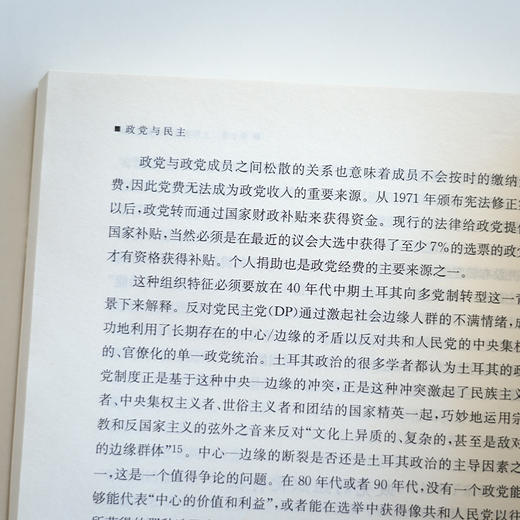 ■ 政党与民主
政党与政党成员之间松散的关系也意味着成员不会按时的缴纳
费,因此党费无法成为政党收入的重要来源。从 1971 年颁布宪法修正
以后,政党转而通过国家财政补贴来获得资金。现行的法律给政党提供
国家补贴,当然必须是在最近的议会大选中获得了至少 7%的选票的政
才有资格获得补贴。个人捐助也是政党经费的主要来源之一。
这种组织特征必须要放在 40 年代中期土耳其向多党制转型这一
景下来解释。反对党民主党(DP)通过激起社会边缘人群的不满情绪,成
功地利用了长期存在的中心/边缘的矛盾以反对共和人民党的中央集权
的、官僚化的单一政党统治。土耳其政治的很多学者都认为土耳其的政
党制度正是基于这种中央—边缘的冲突,正是这种冲突激起了民族主义
者、中央集权主义者、世俗主义者和团结的国家精英一起,巧妙地运用宗
教和反国家主义的弦外之音来反对“文化上异质的、复杂的,甚至是敌对
的边缘群体”15。中心—边缘的断裂是否还是土耳其政治的主导因素之
一,这是一个值得争论的问题。在 80 年代或者 90 年代,没有一个政党能
够能代表“中心的价值和利益”,或者能在选举中获得像共和人民党以往